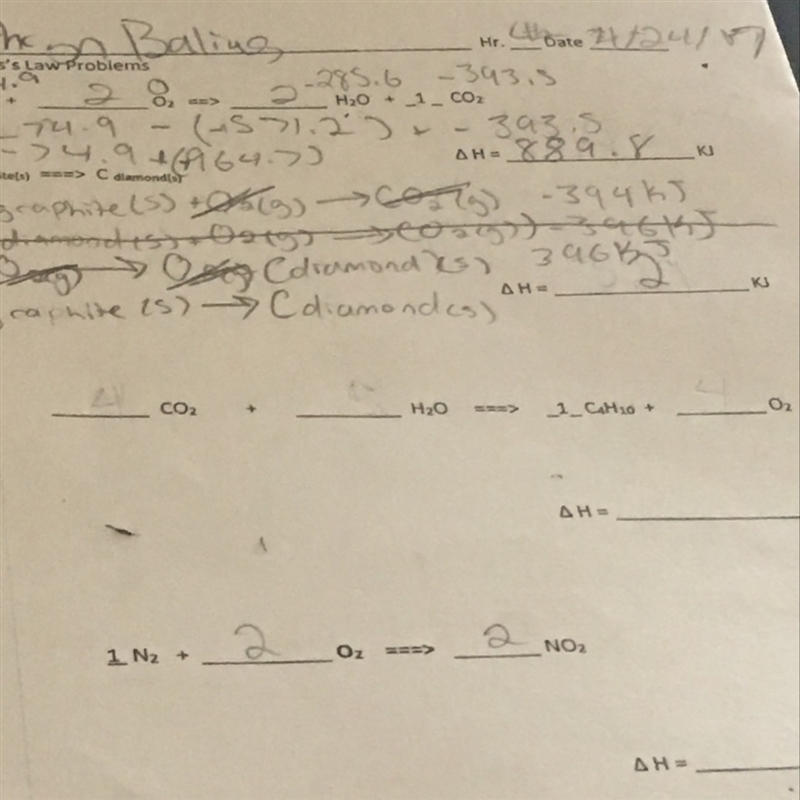 Baling Hr. 4th Date 4/24/17
s's Law Problems
4.9 0 -285.6 -393.5
+ 2 O₂ ==> 2 H₂O + _1_ CO₂
-74.9 - (-571.2) + -393.5
-74.9 +(+964.7) ΔH = 889.8 KJ
ite(s) ===> C diamond(s)
graphite(s) + O₂(g) → CO₂(g) -394 KJ
diamond(s) + O₂(g) → CO₂(g)) -396 KJ
O₂(g) → O₂(g) C diamond (s) 396 KJ
ΔH = 2 KJ
graphite (s) → C diamond(s)
4 CO₂ + H₂O ===> _1_ C₄H₁₀ + 4 O₂
ΔH =
1 N₂ + 2 O₂ ===> 2 NO₂
ΔH =